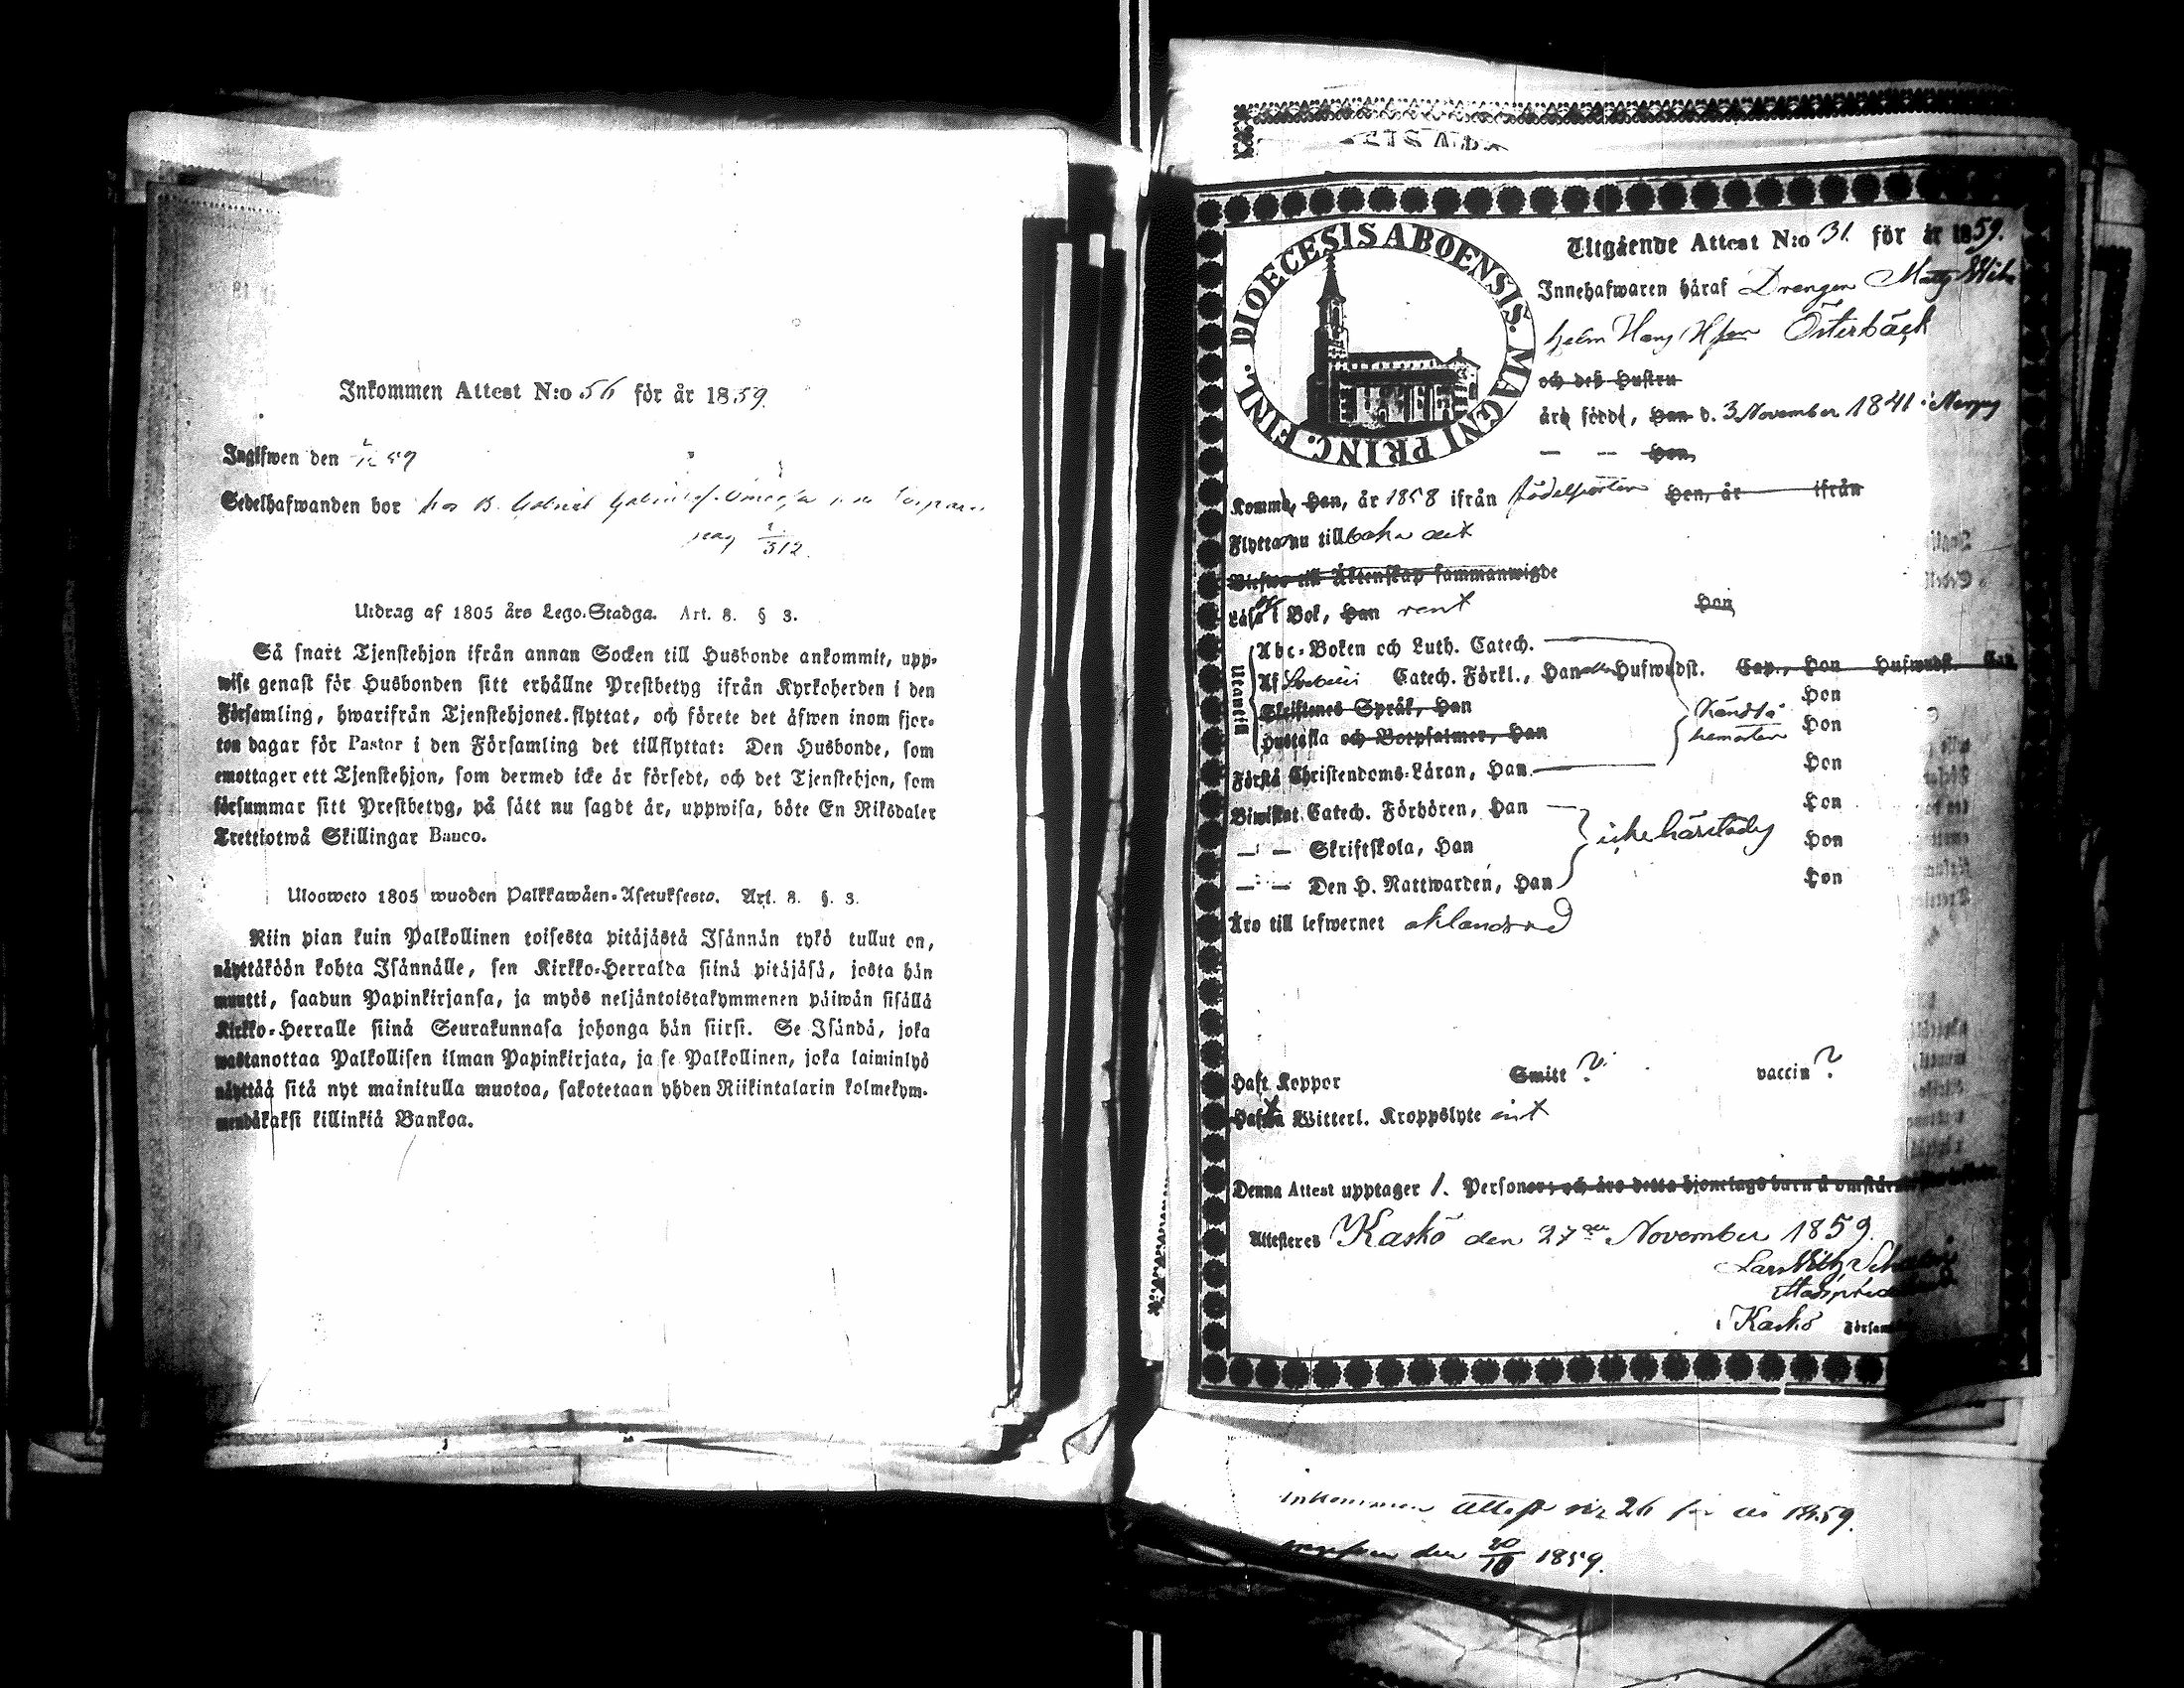 Inkommen Attest N:o 56 för år 1859.
Ingifwen den 59
Sedelhafwanden bor hos B. Gabriel
pag 312.
Utdrag af 1805 års Lego-Stadga. Art. 8. § 3.
Så snart Tjenstehjon ifrån annan Socken till Husbonde ankommit, upp-
wise genast för Husbonden sitt erhållne Prestbetyg ifrån Kyrkoherden i den
Församling, hwarifrån Tjenstehjonet flyttat, och förete det äfwen inom fjor-
ton dagar för Pastor i den Församling det tillflyttat: Den Husbonde, som
emottager ett Tjenstehjon, som dermed icke är försedt, och det Tjenstehjon, som
försummar sitt Prestbetyg, på sätt nu sagdt är, uppwisa, böte En Riksdaler
Trettiotwå Skillingar Banco.
Ulosweto 1805 wuoden Palkkawäen-Asetuksesta. Art. 8. §. 3.
Niin pian kuin Palkollinen toisesta pitäjästä Isännän tykö tullut on,
näyttäköön kohta Isännälle, sen Kirkko-Herralda siinä pitäjäsä, josta hän
muutti, saadun Papinkirjansa, ja myös neljäntoistakymmenen päiwän sisällä
Kirkko-Herralle siinä Seurakunnasa johonga hän siirsi. Se Isändä, joka
wastanottaa Palkollisen ilman Papinkirjata, ja se Palkollinen, joka laiminlyö
näyttää sitä nyt mainitulla muotoa, sakotetaan yhden Riikintalarin kolmekym-
mendäkaksi killinkiä Bankoa.
DIOECESIS ABOENSIS. MAGNI PRINC. FINL.
Utgående Attest N:o 31. för år 1859.
Innehafwaren häraf Drengen Matts Wil-
helm Österbäck
och dess Hustru
äro födde, Han d. 3 November 1841 i
— — Hon,
Komma, Han, år 1858 ifrån födelseorten Hon, år ifrån
Flytta nu tillbaka dit
Blefwo till Äktenskap sammanwigde
Läsa i Bok, Han rent Hon
Utantill
Abc-Boken och Luth. Catech.
Af Catech. Förkl., Han Hufwudst. Cap., Hon Hufwudst. Cap.
Skriftenes Språk, Han Hon
Hustafla och Botpsalmer, Han Hon
Kändt i hemorten
Förstå Christendoms-Läran, Han Hon
Biwistat Catech. Förhören, Han Hon
— — Skriftskola, Han Hon
icke härstädes
— — Den H. Nattwarden, Han Hon
Äro till lefwernet oklandrad
Haft Koppor Smitt ? vaccin ?
Hafwa Witterl. Kroppslyte
Denna Attest upptager 1. Personer; och äro detta hjonelags barn å omstående
Attesteres Kaskö den 27de November 1859.
Lars
i Kaskö Församl
inkommen Attest N:r 26 för år 1859.
ingifwen den 20/10 1859.